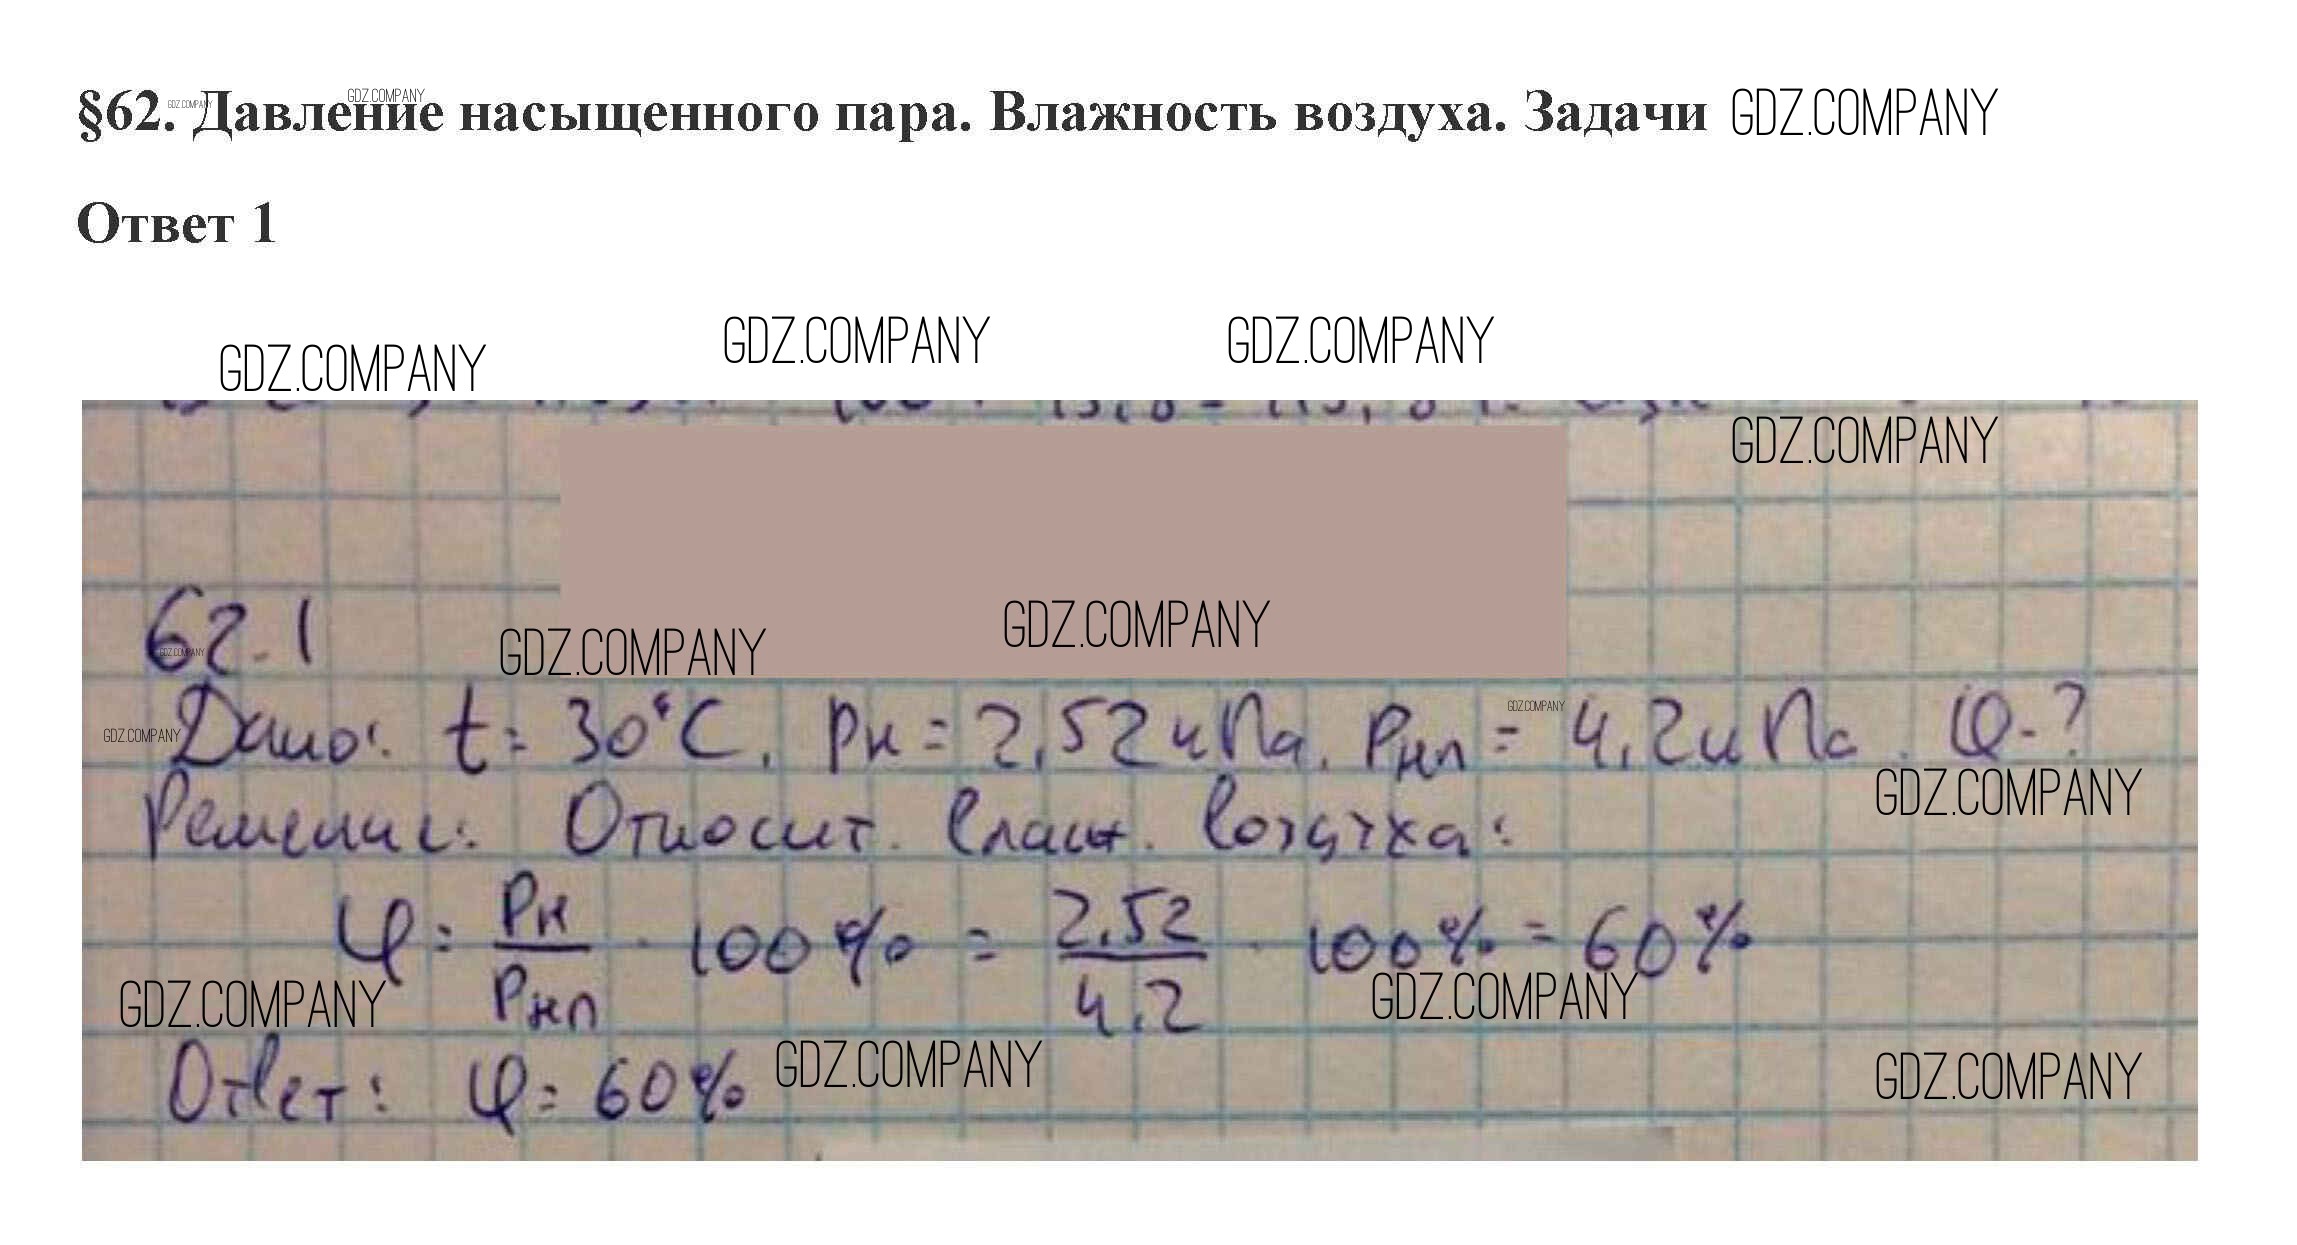 §62. Давление насыщенного пара. Влажность воздуха. Задачи GDZ.COMPANY
GDZ.COMPANY GDZ.COMPANY
Ответ 1
GDZ.COMPANY GDZ.COMPANY GDZ.COMPANY
GDZ.COMPANY
62.1 GDZ.COMPANY GDZ.COMPANY GDZ.COMPANY
Дано: t = 30°C, Pн = 2,52 кПа, Pнп = 4,2 кПа. φ-?
GDZ.COMPANY GDZ.COMPANY
Решение: Относит. влаж. воздуха: GDZ.COMPANY
φ = Pн/Pнп · 100% = 2,52/4,2 · 100% = 60%
GDZ.COMPANY GDZ.COMPANY
Ответ: φ = 60% GDZ.COMPANY GDZ.COMPANY